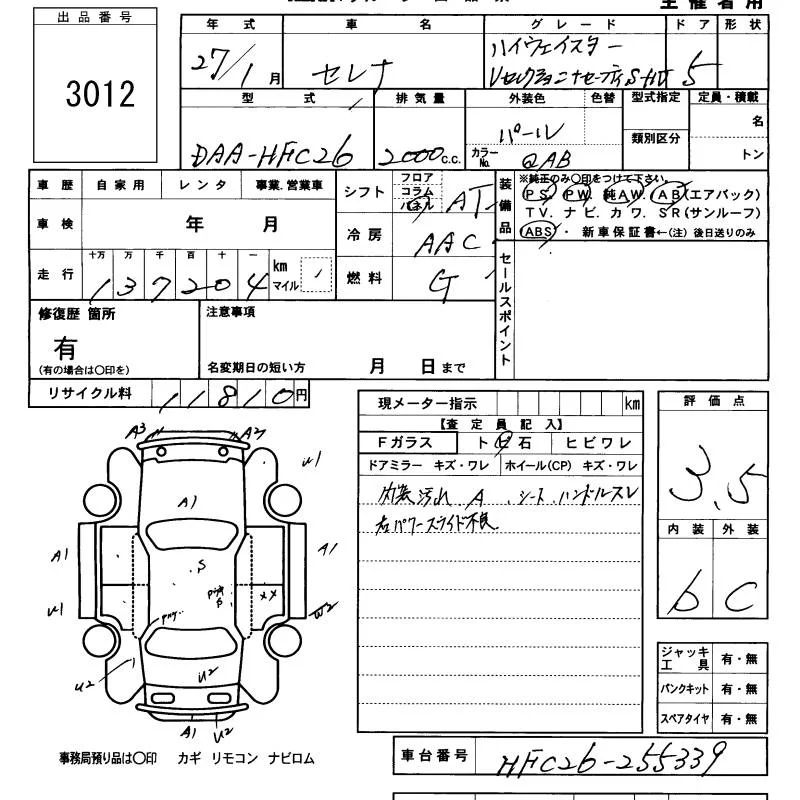 出品番号
3012
年式 車名 グレード ドア 形状
27/1月 セレナ ハイウェイスター
5
型式 排気量 外装色 色替 型式指定 定員・積載
類別区分 名
DAA-HFC26 2000c.c. パール
カラーNo. QAB トン
車歴 自家用 レンタ 事業.営業車
車検 年 月
走行 十万 万 千 百 十 一
137204 km マイル
シフト フロア コラム パネル AT
冷房 AAC
燃料 G
装備品 ※純正のみ○印をつけて下さい。
PS. PW. 純AW. AB(エアバック)
TV. ナビ. カワ. SR(サンルーフ)
ABS・ 新車保証書←(注) 後日送りのみ
セールスポイント
修復歴 箇所 注意事項
有
(有の場合は○印を) 名変期日の短い方 月 日まで
リサイクル料 11810円
現メーター指示 km
【査定員記入】
Fガラス ト ビ 石 ヒビワレ
ドアミラー キズ・ワレ ホイール(CP) キズ・ワレ
内装汚れ A . シート . ハンドルスレ
右パワースライド不良
評価点
3.5
内装 外装
b C
A3 A2
U1
A1
A1 A1
S
U1 W2
XX
U2 U2
A1 U2
ジャッキ工具 有・無
パンクキット 有・無
スペアタイヤ 有・無
事務局預り品は○印 カギ リモコン ナビロム
車台番号 HFC26-255339